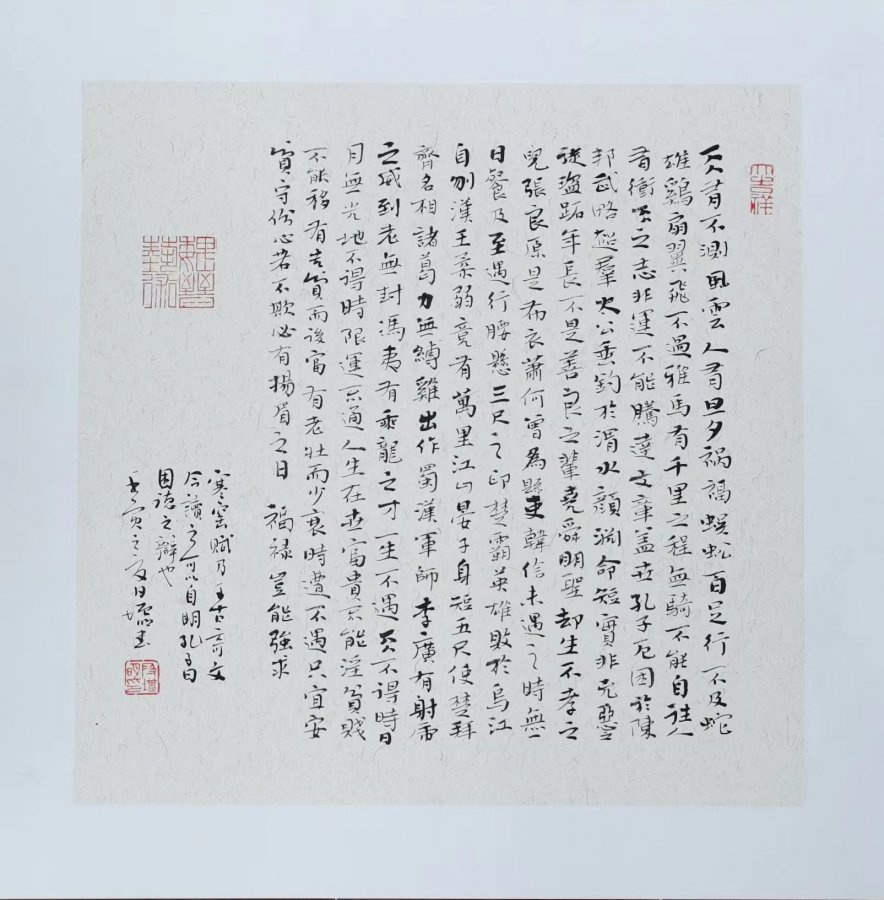 天有不測風雲人有旦夕禍福蜈蚣百足行不及蛇
雄鷄扇翼飛不過雅馬有千里之程無騎不能自往人
有衝天之志非運不能騰達文章蓋世孔子厄困於陳
邦武略超羣太公垂釣於渭水顏淵命短實非兇惡之
徒盜跖年長不是善良之輩堯舜明聖却生不孝之
兒張良原是布衣蕭何曾為縣吏韓信未遇之時無一
日餐及至遇行腰懸三尺之印楚霸英雄敗於烏江
自刎漢王柔弱竟有萬里江山晏子身短五尺使楚拜
齊名相諸葛力無縛雞出作蜀漢軍師李廣有射虎
之威到老無封馮夷有乘龍之才一生不遇天不得時日
月無光地不得時限運不通人生在世富貴不能淫貧賤
不能移有先貧而後富有老壯而少衰時遭不遇只宜安
貧守份心若不欺必有揚眉之日 福禄豈能強求
寒窑賦乃千古奇文
今讀之可以自明孔子曰
困德之辯也
壬寅之夏日書